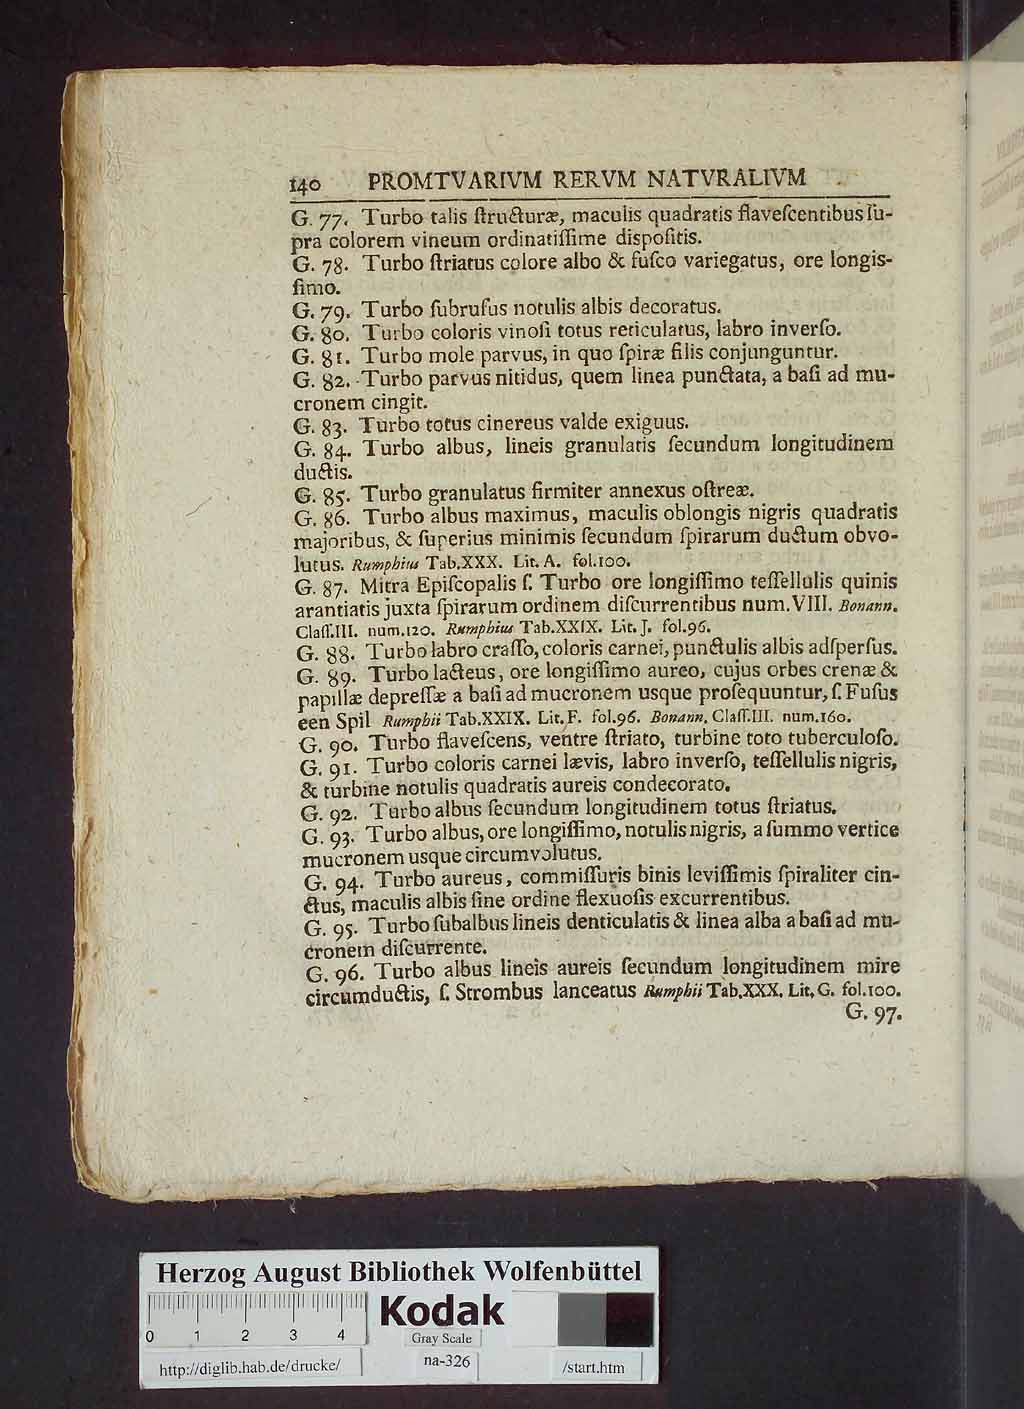 140 PROMTVARIVM RERVM NATVRALIVM
G. 77. Turbo talis ſtructuræ, maculis quadratis flaveſcentibus ſu-
pra colorem vineum ordinatiſſime dispoſitis.
G. 78. Turbo ſtriatus colore albo & fuſco variegatus, ore longis-
ſimo.
G. 79. Turbo ſubrufus notulis albis decoratus.
G. 80. Turbo coloris vinoſi totus reticulatus, labro inverſo.
G. 81. Turbo mole parvus, in quo ſpiræ filis conjunguntur.
G. 82. Turbo parvus nitidus, quem linea punctata, a baſi ad mu-
cronem cingit.
G. 83. Turbo totus cinereus valde exiguus.
G. 84. Turbo albus, lineis granulatis ſecundum longitudinem
ductis.
G. 85. Turbo granulatus firmiter annexus oſtreæ.
G. 86. Turbo albus maximus, maculis oblongis nigris quadratis
majoribus, & ſuperius minimis ſecundum ſpirarum ductum obvo-
lutus. Rumphius Tab.XXX. Lit. A. fol.100.
G. 87. Mitra Epiſcopalis ſ. Turbo ore longiſſimo teſſellulis quinis
arantiatis juxta ſpirarum ordinem diſcurrentibus num.VIII. Bonann.
Claſſ.III. num.120. Rumphius Tab.XXIX. Lit. J. fol.96.
G. 88. Turbo labro craſſo, coloris carnei, punctulis albis adſperſus.
G. 89. Turbo lacteus, ore longiſſimo aureo, cujus orbes crenæ &
papillæ depreſſæ a baſi ad mucronem usque proſequuntur, ſ. Fuſus
een Spil Rumphii Tab.XXIX. Lit. F. fol.96. Bonann. Claſſ.III. num.160.
G. 90. Turbo flaveſcens, ventre ſtriato, turbine toto tuberculoſo.
G. 91. Turbo coloris carnei lævis, labro inverſo, teſſellulis nigris,
& turbine notulis quadratis aureis condecorato.
G. 92. Turbo albus ſecundum longitudinem totus ſtriatus.
G. 93. Turbo albus, ore longiſſimo, notulis nigris, a ſummo vertice
mucronem usque circumvolutus.
G. 94. Turbo aureus, commiſſuris binis leviſſimis ſpiraliter cin-
ctus, maculis albis ſine ordine flexuoſis excurrentibus.
G. 95. Turbo ſubalbus lineis denticulatis & linea alba a baſi ad mu-
cronem diſcurrente.
G. 96. Turbo albus lineis aureis ſecundum longitudinem mire
circumductis, ſ. Strombus lanceatus Rumphii Tab.XXX. Lit. G. fol.100.
G. 97.
Herzog August Bibliothek Wolfenbüttel
0 1 2 3 4
Kodak
Gray Scale
http://diglib.hab.de/drucke/
na-326
/start.htm